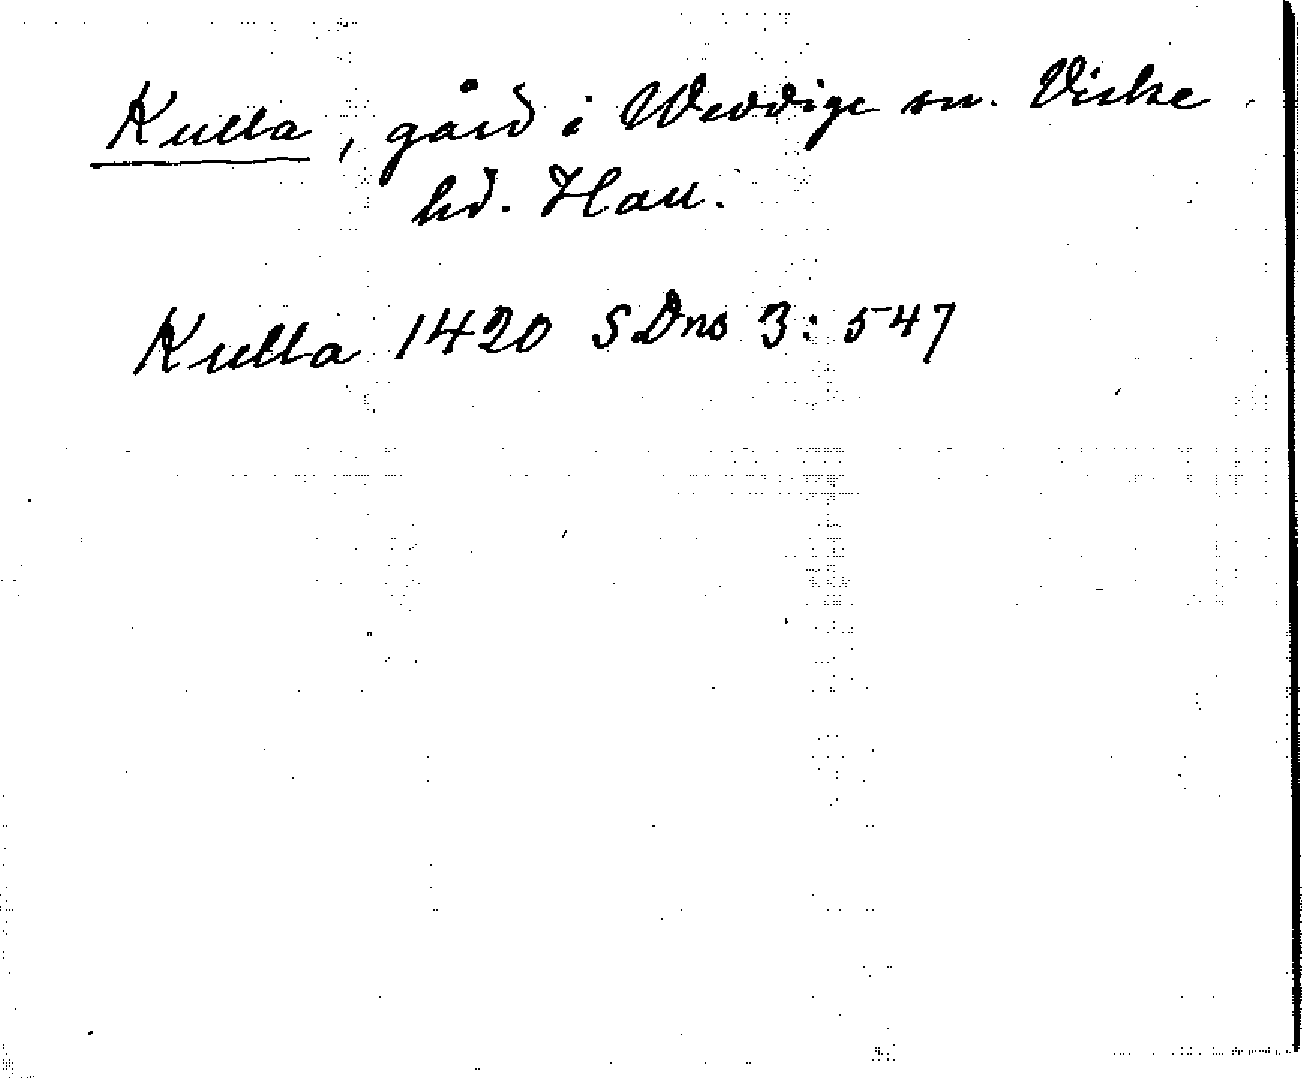 Kulla, gård i Weddige sn. Viske
hd. Hall.
Kulla 1420 SDns 3: 547